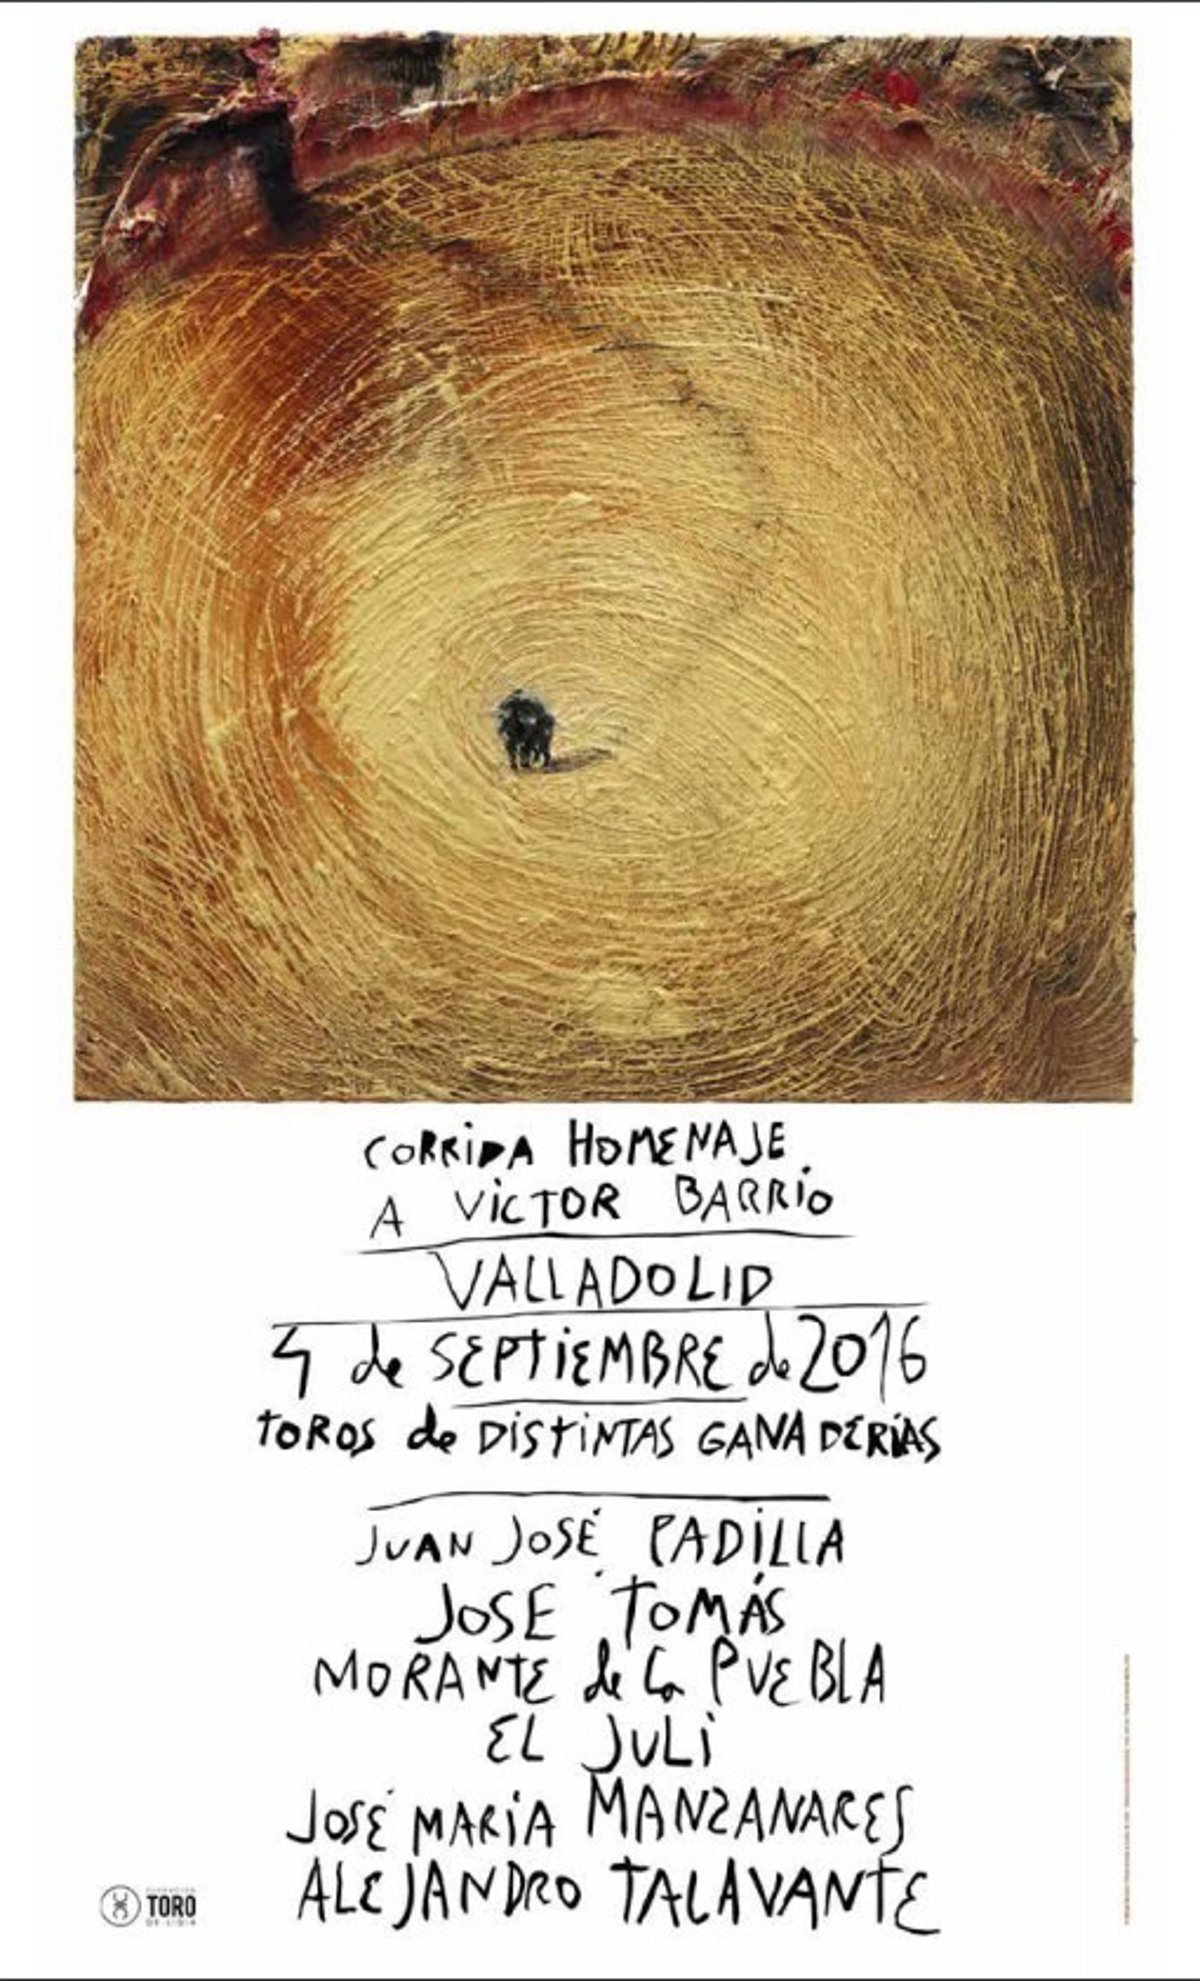 CORRIDA HOMENAJE
A VICTOR BARRIO
VALLADOLID
4 de SEPTIEMBRE de 2016
TOROS de DISTINTAS GANADERÍAS
JUAN JOSÉ PADILLA
JOSÉ TOMÁS
MORANTE de la PUEBLA
EL JULI
JOSÉ MARÍA MANZANARES
ALEJANDRO TALAVANTE
FUNDACIÓN
TORO
DE LIDIA